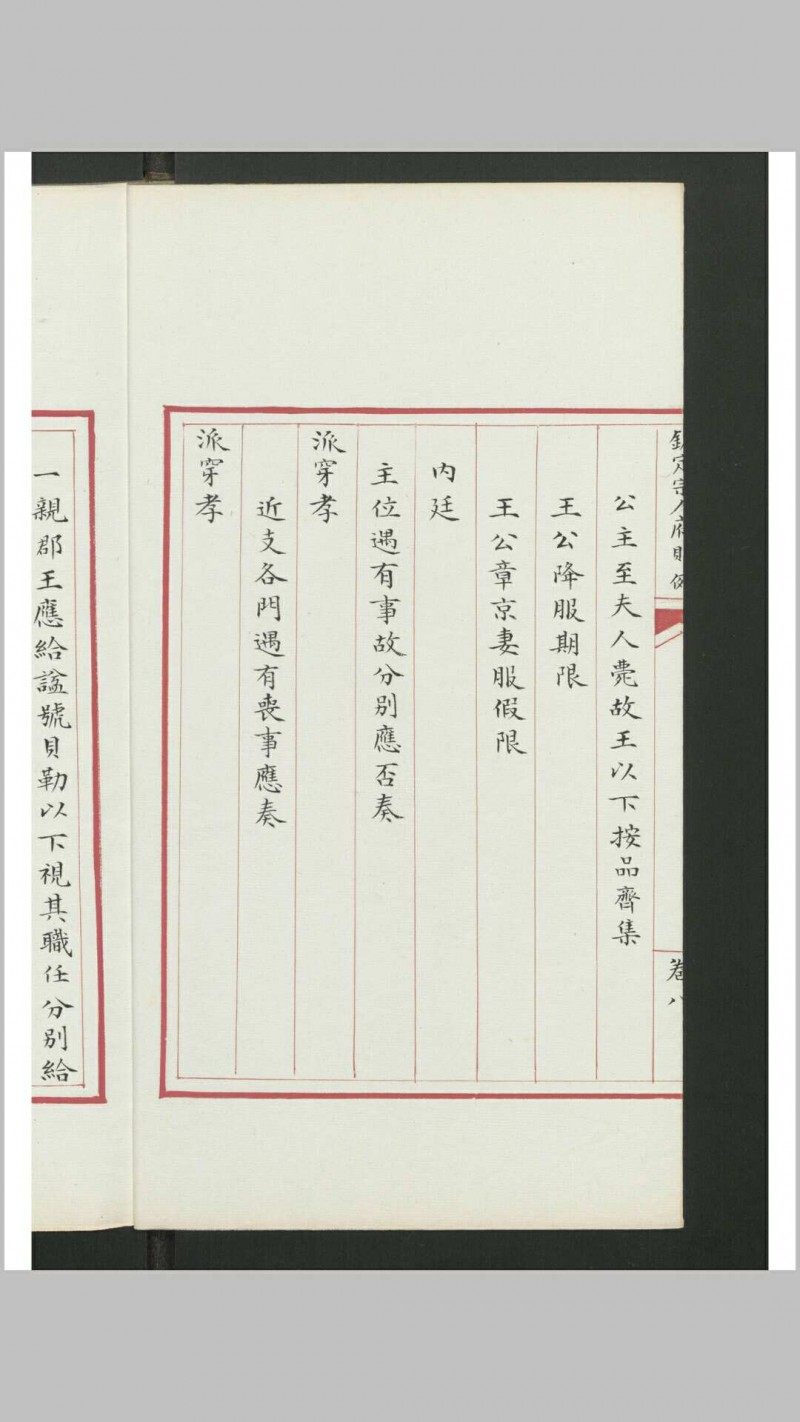 欽定宗人府則例
卷八
公主至夫人薨故王以下按品齊集
王公降服期限
王公章京妻服假限
內廷
主位遇有事故分別應否奏
派穿孝
近支各門遇有喪事應奏
派穿孝
一親郡王應給諡號貝勒以下視其職任分別給